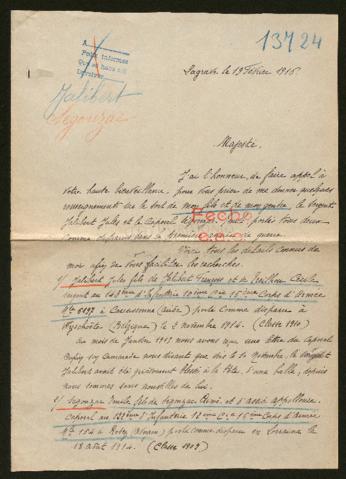 13424
A
Pour informer
Que se hace aut
Dernier
Jalibert
Segonzac
Lagrasse le 13 Février 1915.
Majesté.
J'ai l'honneur de faire appel à
votre haute bienveillance, pour vous prier de me donner quelques
renseignements sur le sort de mon fils et de mon gendre, le sergent
Jalibert Jules et le Caporal Segonzac, portés tous deux
comme disparus dans la
Voici tous les détails connus de
moi afin de vous faciliter les recherches.
1/ Jalibert Jules fils de Jalibert François et de Cécile
sergent au 143ème d'Infanterie 10ème Cie 16ème Corps d'Armée
No 6197 à Carcassonne (Aude) porté comme disparu
à (Belgique) le 2 novembre 1914. (Classe 1910)
Au mois de Janvier 1915 nous avons eu une lettre du Caporal
nous disant que vers le 10 Novembre, le sergent
Jalibert avait été grièvement blessé à la tête d'une balle, depuis
nous sommes sans nouvelles de lui.
2/ Segonzac Emile fils de Segonzac Rémi et d'
Caporal au 122ème d'Infanterie 12ème Cie 16ème Corps d'Armée
No 154 à Rodez (Aveyron) porté comme disparu en Lorraine le
18 août 1914. (Classe 1909)